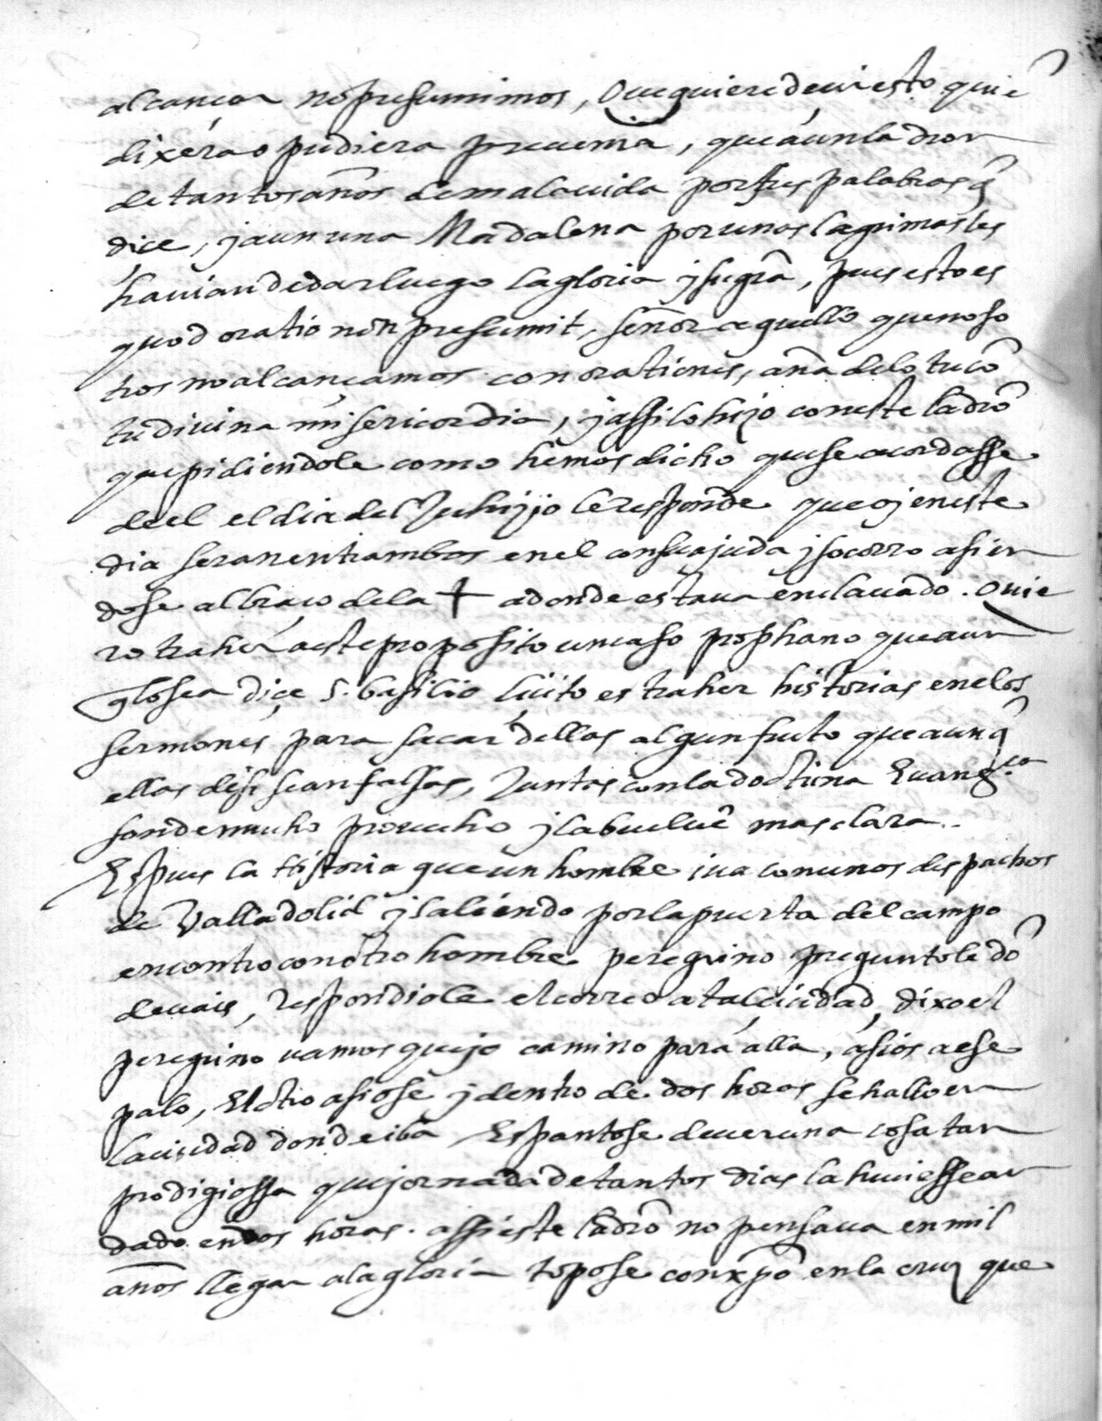 alcançar no presumimos, Que quiere deçir esto quiẽ
dixera o pudiera preuenir, que á un ladron
de tantos años de mala vida por tres palabras q̃
dice, y a un una Madalena por unas lagrimas les
hauian de dar luego la gloria y su gr̃a, pues esto es
quod oratio non presumit, señor aquello que noso
tros no alcançamos con orationes, aña delo tu cõ
tu diuina misericordia, y assi lo hijo con este ladrõ
que pidiendole como hemos dicho que se acordasse
de el el dia del Juhijio le responde que oj en este
dia seran entrambos en el con su ajuda y socorro asien
dose al braço de la + adonde estaua enclauado. Quie
ro traher a este proposito un caso prophano que aun
q̃ lo sea diçe S. basilio liçito es traher historias en los
sermones para sacar dellas algun fruto que aunq̃
ellas de si sean falsas, Juntas con la doctrina Euangca
son de mucho prouecho y la bueluẽ mas clara.
Es pues la Historia que un hombre iua con unos despachos
de Valladolid y saliendo por la puerta del campo
encontro con otro hombre peregrino preguntole dõ
de vais, Respondiole el correo a tal ciudad, dixo el
peregrino vamos que jo camino para alla, ásios a ese
palo, El otro asiose y dentro de dos horas se hallo en
la ciudad donde iba Espantose de ver una cosa tan
prodigiossa que jornada de tantos dias la huuiesse an
dado en dos horas. assi este ladrõ no pensaua en mil
años llegar a la gloria topose con xp̃o en la cruz que